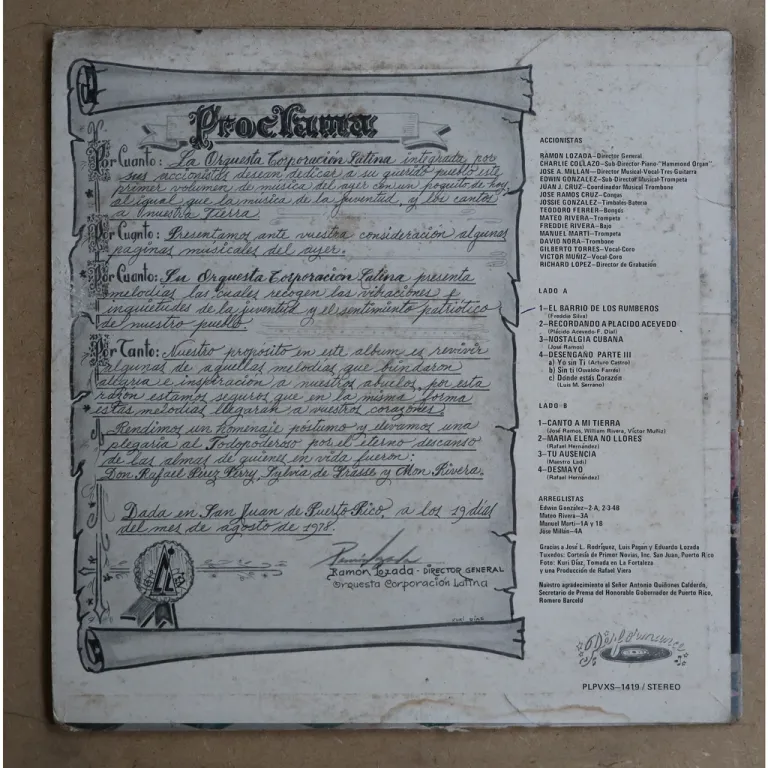 Proclama:
Por Cuanto: La Orquesta Corporación Latina integrada por
sus accionistas desean dedicar a su querido pueblo este
primer volumen de musica del ayer con un poquito de hoy,
al igual que la musica de la juventud, y los cantos
a nuestra Tierra.
Por Cuanto: Presentamos ante vuestra consideración algunas
paginas musicales del ayer.
Por Cuanto: Su Orquesta Corporación Latina presenta
melodias las cuales recogen las vibraciones e
inquietudes de la juventud y el sentimiento patriotico
de nuestro pueblo.
Por Tanto: Nuestro proposito en este album es revivir
algunas de aquellas melodias que brindaron
alegria e inspiracion a nuestros abuelos, por esta
razon estamos seguros que en la misma forma
estas melodias llegaran a vuestros corazones.
Rendimos un homenaje postumo y elevamos una
plegaria al Todopoderoso por el eterno descanso
de las almas de quienes en vida fueron:
Don Rafael Perez Perry, Sylvia de Grasse y Mon Rivera.
Dada en San Juan de Puerto Rico, a los 19 dias
del mes de agosto de 1978.
Ramon Lozada - DIRECTOR GENERAL
Orquesta Corporación Latina
ACCIONISTAS
RAMON LOZADA—Director General
CHARLIE COLLAZO—Sub Director-Piano "Hammond Organ"
JOSE A. MILLAN—Director Musical-Vocal-Tres-Guitarra
EDWIN GONZALEZ—Sub Director Musical-Trompeta
JUAN J. CRUZ—Coordinador Musical Trombone
JOSE RAMOS CRUZ—Congas
JOSSIE GONZALEZ—Timbales-Bateria
TEODORO FERRER—Bongós
MATEO RIVERA—Trompeta
FREDDIE RIVERA—Bajo
MANUEL MARTI—Trompeta
DAVID NORA—Trombone
GILBERTO TORRES—Vocal-Coro
VICTOR MUÑIZ—Vocal Coro
RICHARD LOPEZ—Director de Grabación
LADO A
1—EL BARRIO DE LOS RUMBEROS
(Freddie Silva)
2—RECORDANDO A PLACIDO ACEVEDO
(Plácido Acevedo-P. Dial)
3—NOSTALGIA CUBANA
(José Ramos)
4—DESENGAÑO PARTE III
a) Yo sin Ti (Arturo Castro)
b) Sin ti (Osvaldo Farrés)
c) Dónde estás Corazón
(Luis M. Serrano)
LADO B
1—CANTO A MI TIERRA
(José Ramos, William Rivera, Victor Muñiz)
2—MARIA ELENA NO LLORES
(Rafael Hernández)
3—TU AUSENCIA
(Maestro Ladi)
4—DESMAYO
(Rafael Hernández)
ARREGLISTAS
Edwin González—2-A, 2-3-4B
Mateo Rivera—3A
Manuel Marti—1A y 1B
José Millán—4A
Gracias a José L. Rodríguez, Luis Pagan y Eduardo Lozada
Tuxedos: Cortesía de Primor Novias, Inc. San Juan, Puerto Rico
Foto: Kuri Díaz, Tomada en La Fortaleza
y una Producción de Rafael Viera
Nuestro agradecimiento al Señor Antonio Quiñones Calderón,
Secretario de Prensa del Honorable Gobernador de Puerto Rico,
Romero Barceló
Performance
PLPVXS—1419 / STEREO